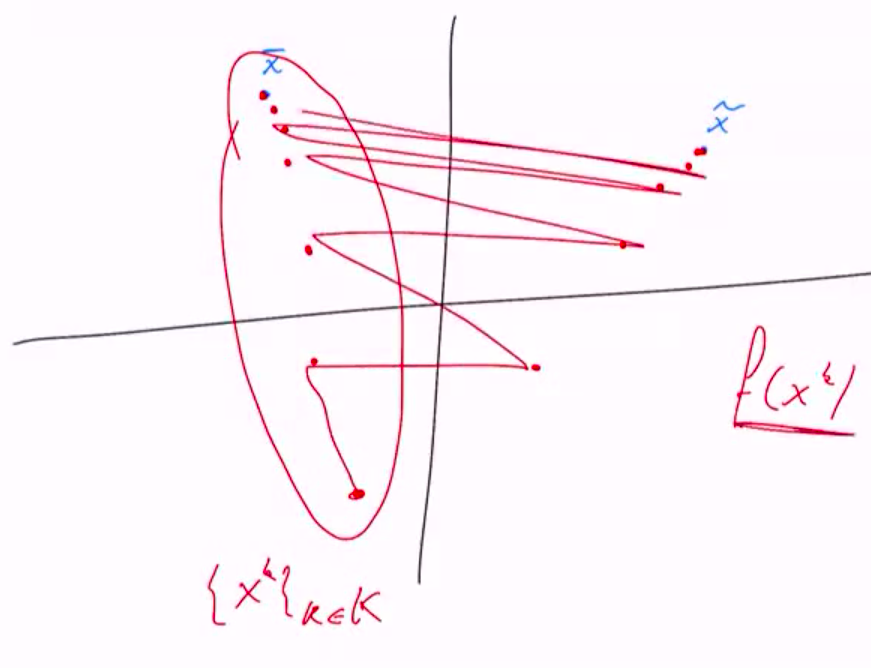 x̄
x̃
f(x^k)
{x^k}_{k∈K}